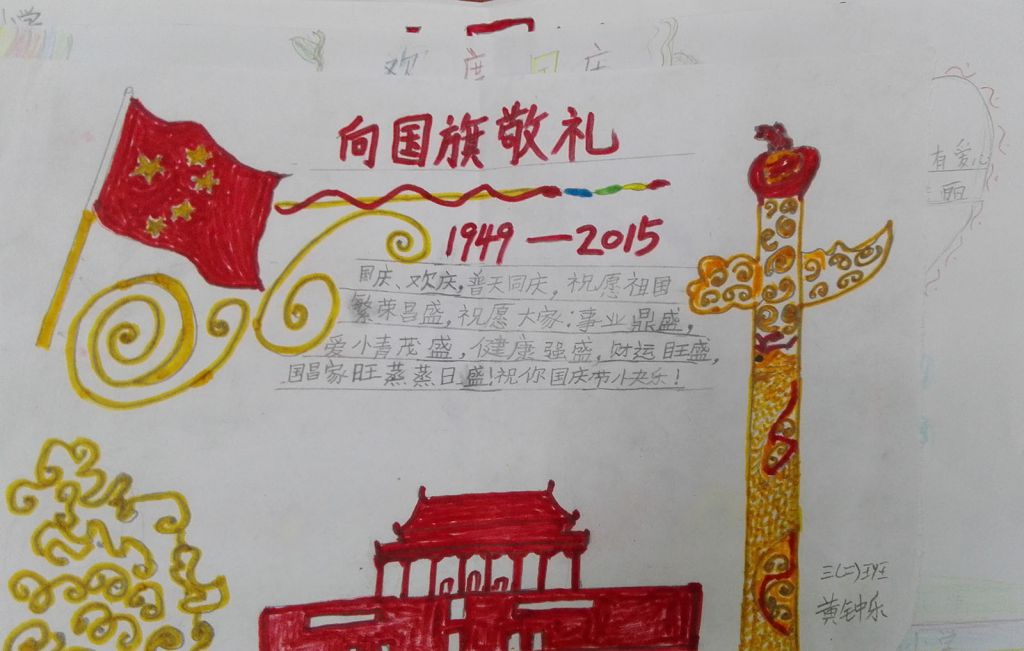 小学
欢度国庆
向国旗敬礼
1949—2015
有爱心
国庆、欢庆,普天同庆,祝愿祖国
繁荣昌盛,祝愿大家:事业鼎盛,
爱小青茂盛,健康强盛,财运旺盛,
国昌家旺蒸蒸日盛!祝你国庆节小夬乐!
三(二)班
黄钟乐
小学